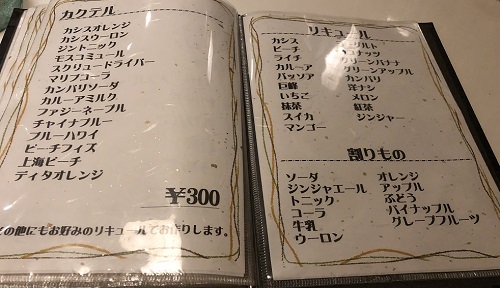 カクテル
カシスオレンジ
カシスウーロン
ジントニック
モスコミュール
スクリュードライバー
マリブコーラ
カンパリソーダ
カルーアミルク
ファジーネーブル
チャイナブルー
ブルーハワイ
ピーチフィズ
上海ピーチ
ディタオレンジ
¥300
の他にもお好みのリキュールでお作りします。
リキュール
カシス
ピーチ
ライチ
カルーア
パッソア
巨峰
いちご
抹茶
スイカ
マンゴー
グリーンバナナ
グリーンアップル
カンパリ
洋ナシ
メロン
紅茶
ジンジャー
割りもの
ソーダ
ジンジャエール
トニック
コーラ
牛乳
ウーロン
オレンジ
アップル
ぶどう
パイナップル
グレープフルーツ